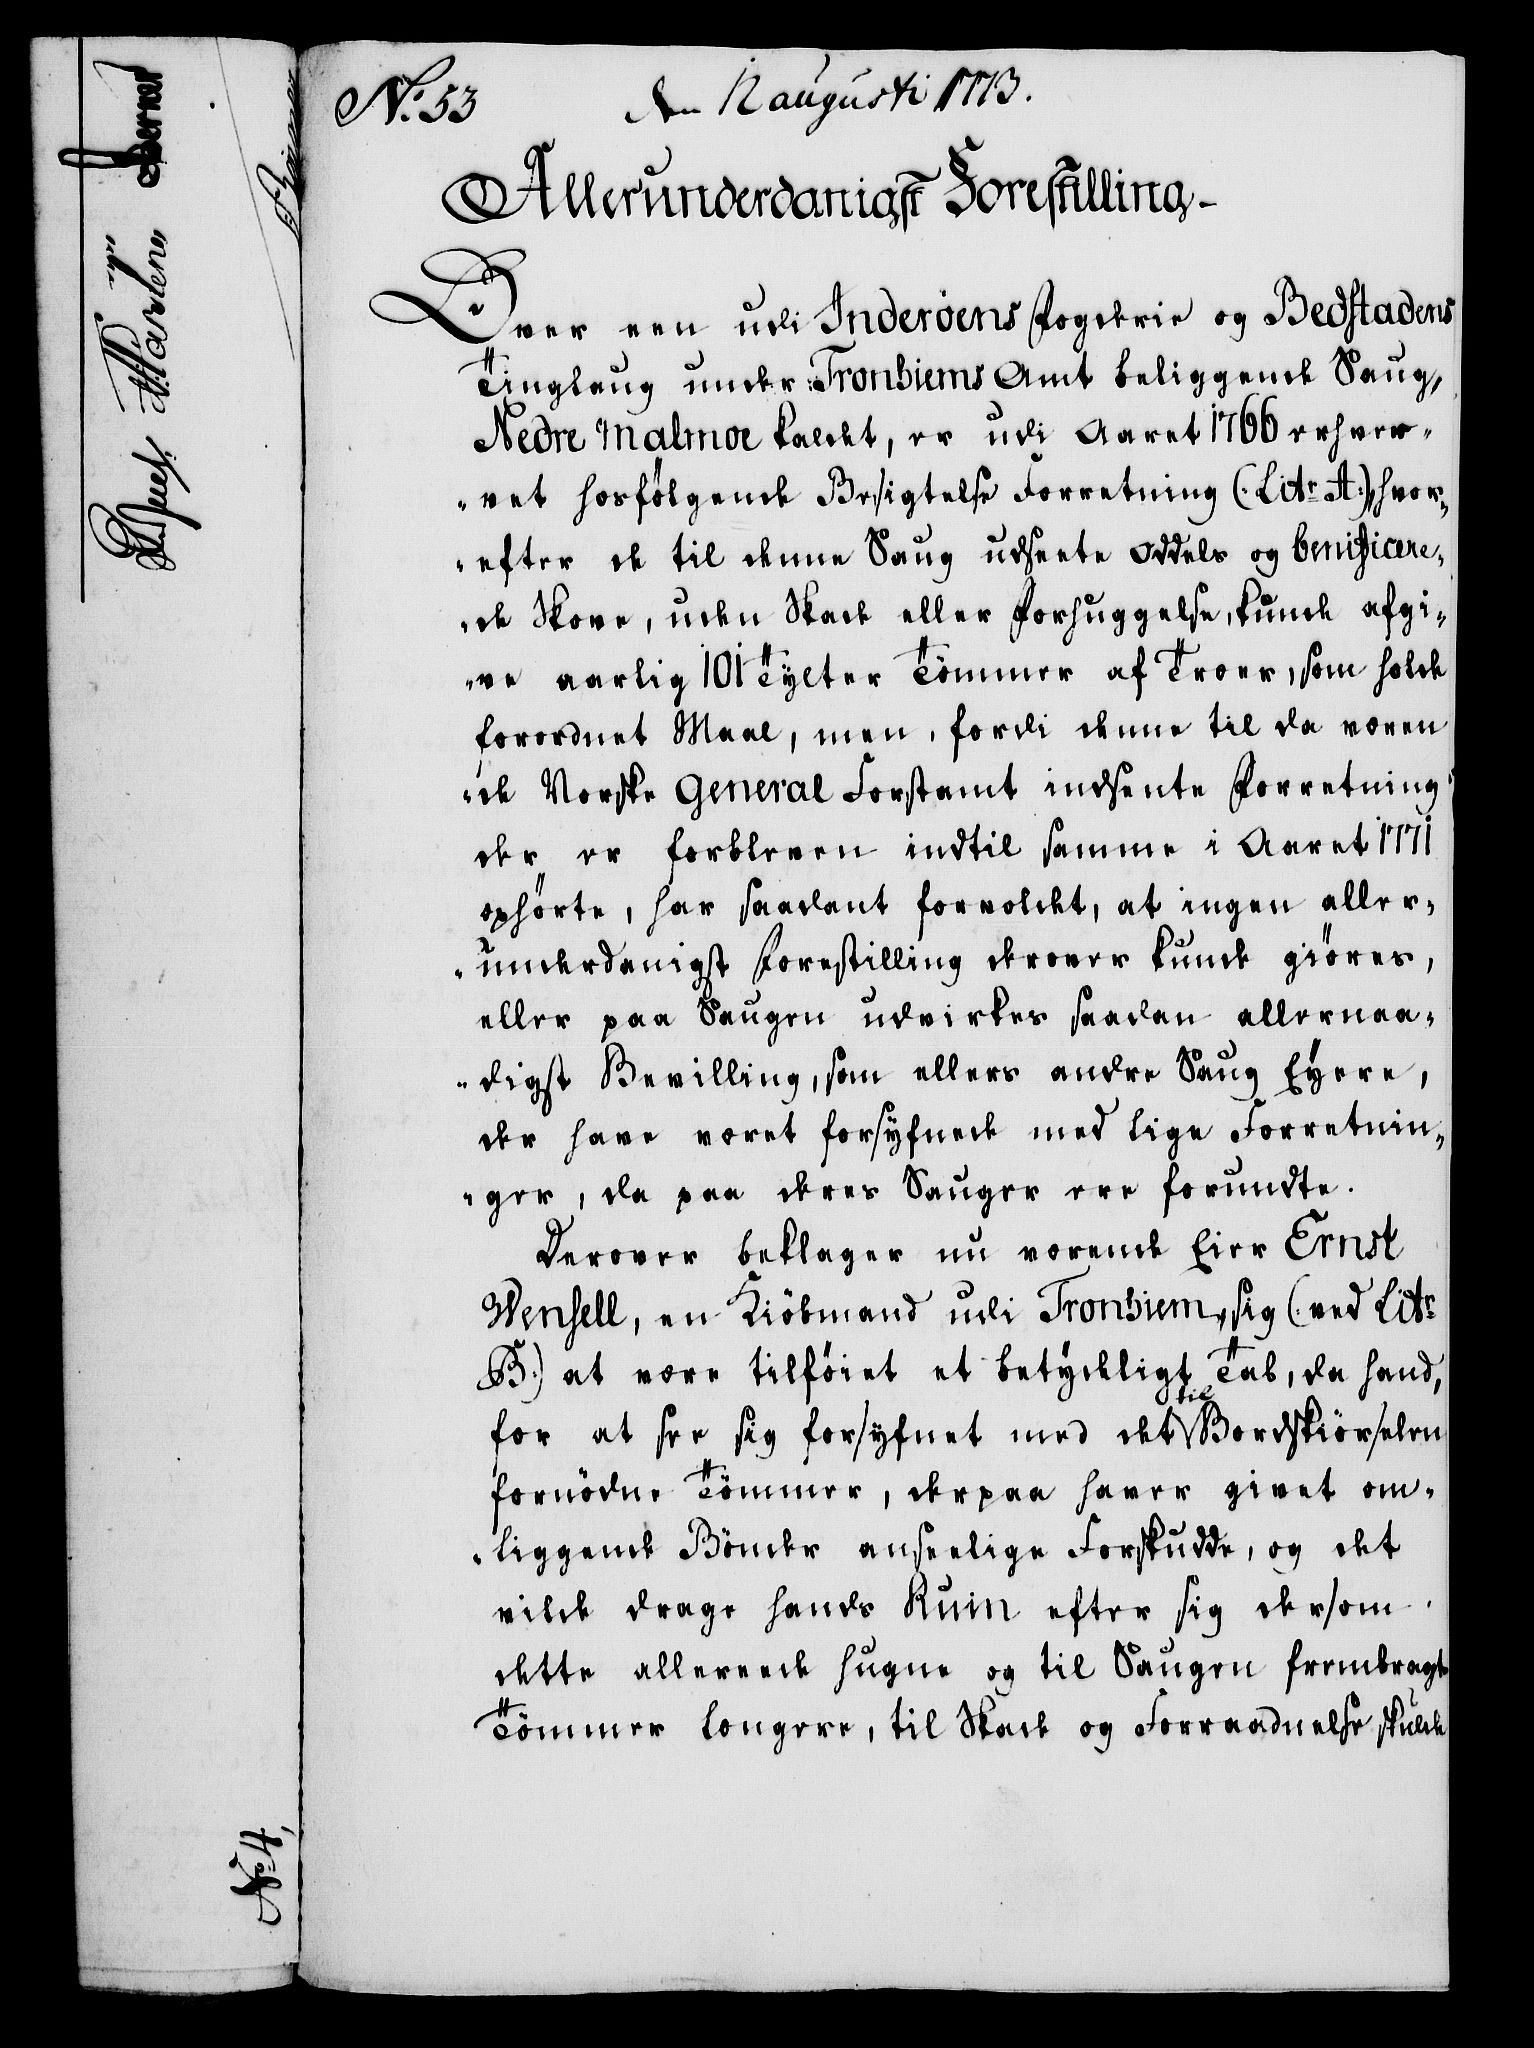 No. 53
den 12 augusti 1773.
Allerunderdanigst Forestilling-
Over een udi Inderöens Fogderie og Bedstadens
Tinglaug under Tronhiems Amt beliggende Saug,
Nedre Malmoe kaldet, er udi Aaret 1766 erhver-
-vet hosfölgende Besigtelse Forretning (: Litr A:), hvor-
-efter de til denne Saug udseete Oddels og benificere-
-de Skove, uden Skade eller Forhuggelse, kunde afgi-
-ve aarlig 101 Tylter Tömmer af Troer, som holde
forordnet Maal, men, fordi denne til da væren
-de Norske General Forstamt indsente Forretning
der er forbleven indtil samme i Aaret 1771
ophörte, har saadant forvoldet, at ingen aller-
-underdanigst Forestilling derover kunde giöres,
eller paa Saugen udvirkes saadan allernaa-
-digst Bevilling, som ellers andre Saug Eyere,
der have været forsyfnede med lige Forretnin-
-ger, da paa deres Sauger ere forundte.
Derover beklager nu værende Eier Ernst
Wensell, en Kiöbmand udi Tronhiem, sig (: ved Litr
B:) at være tilföiet et betydeligt Tab, da hand,
for at see sig forsyfnet med det til Bordskiörselen
fornödne Tömmer, derpaa haver givet om-
-liggende Bönder anseelige Forskudde, og det
vilde drage hands Ruin efter sig dersom
dette allereede hugne og til Saugen frembragte
Tömmer længere, til Skade og Forraadnelse skulde
No 4,